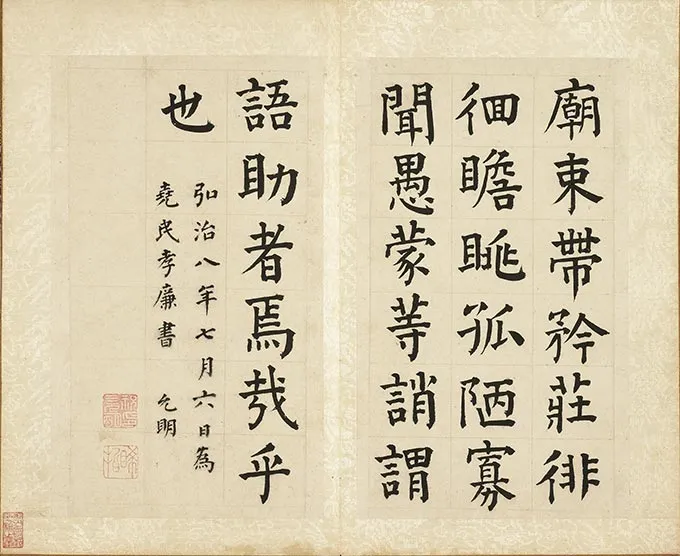 廟束帶矜莊徘
徊瞻眺孤陋寡
聞愚蒙等誚謂
語助者焉哉乎
也
弘治八年七月六日為
堯民孝廉書 允明